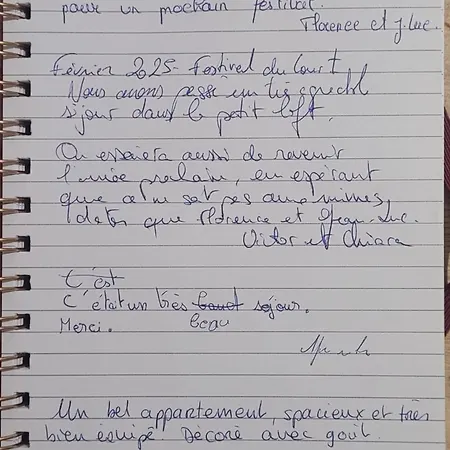 pour un prochain festival.
Florence et J. Luc.
Février 2025 - Festival du Court
Nous avons passé un très agréabl
séjour dans le petit loft.
On essaiera aussi de revenir
l'année prochain, en espérant
que ce ne sat pas aux mêmes
dates que Florence et Jean-Luc.
Victor et Chiara
C'est
C'était un très séjour.
Merci. beau
Un bel appartement, spacieux et très
bien équipé. Décoré avec goût.